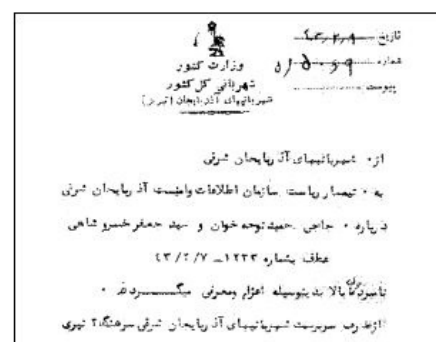 تاریخ ۴۳٫۲٫۹
شماره ۵/۵۰۶۹
پیوست
وزارت کشور
شهربانی کل کشور
شهربانیهای آذربایجان (تبریز)
از : شهربانیهای آذربایجان شرقی
به : تیمسار ریاست سازمان اطلاعات وامنیت آذربایجان شرقی
درباره : حاجی حمید توحه خوان و سید جعفر خسرو شاهی
عطف بشماره ۱۲۳۳ـ ۴۳/۲/۷
نامبردگان بالا بدینوسیله اعزام ومعرفی میگـــردند .
ازطرف سرپرست شهربانیهای آذربایجان شرقی سرهنگ۲